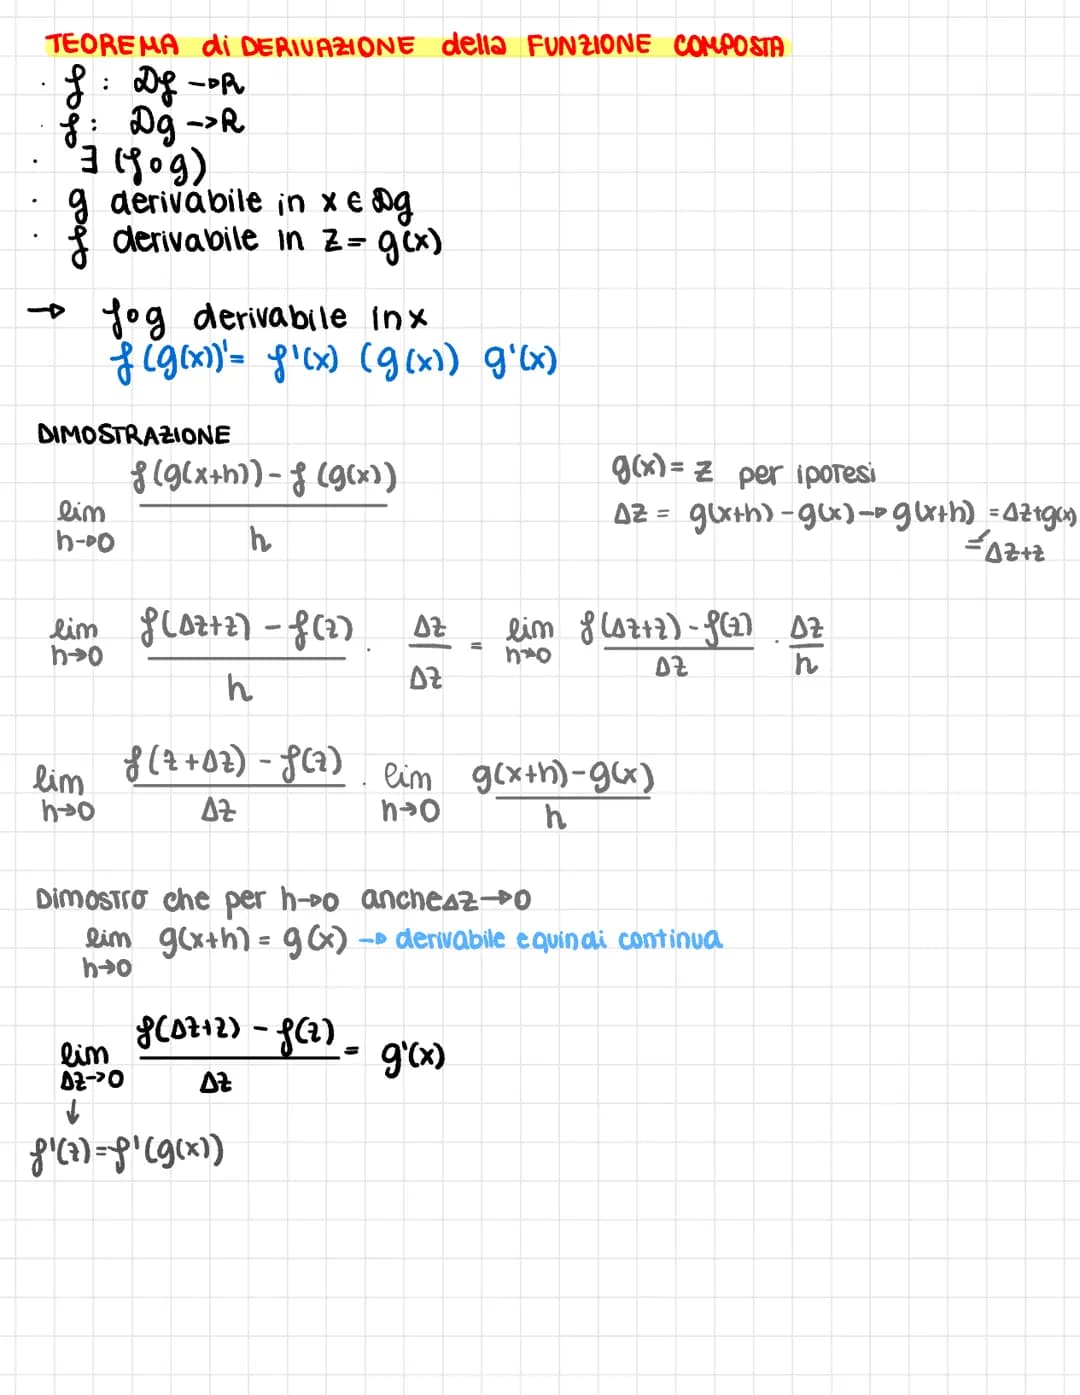 TEOREMA di DERIVAZIONE della FUNZIONE COMPOSTA
· f : Df → R
· f : Dg → R
· ∃ (f∘g)
· g derivabile in x ∈ Dg
· f derivabile in z = g(x)
→ f∘g derivabile in x
f(g(x))' = f'(x) (g(x)) g'(x)
DIMOSTRAZIONE
lim h→0 f(g(x+h)) - f(g(x)) / h
g(x) = z per ipotesi
Δz = g(x+h) - g(x) → g(x+h) = Δz+g(x)
= Δz+z
lim h→0 f(Δz+z) - f(z) / h · Δz / Δz = lim h→0 f(Δz+z) - f(z) / Δz · Δz / h
lim h→0 f(z+Δz) - f(z) / Δz · lim h→0 g(x+h) - g(x) / h
Dimostro che per h→0 anche Δz→0
lim h→0 g(x+h) = g(x) → derivabile e quindi continua
lim Δz→0 f(Δz+z) - f(z) / Δz = g'(x)
↓
f'(z) = f'(g(x))